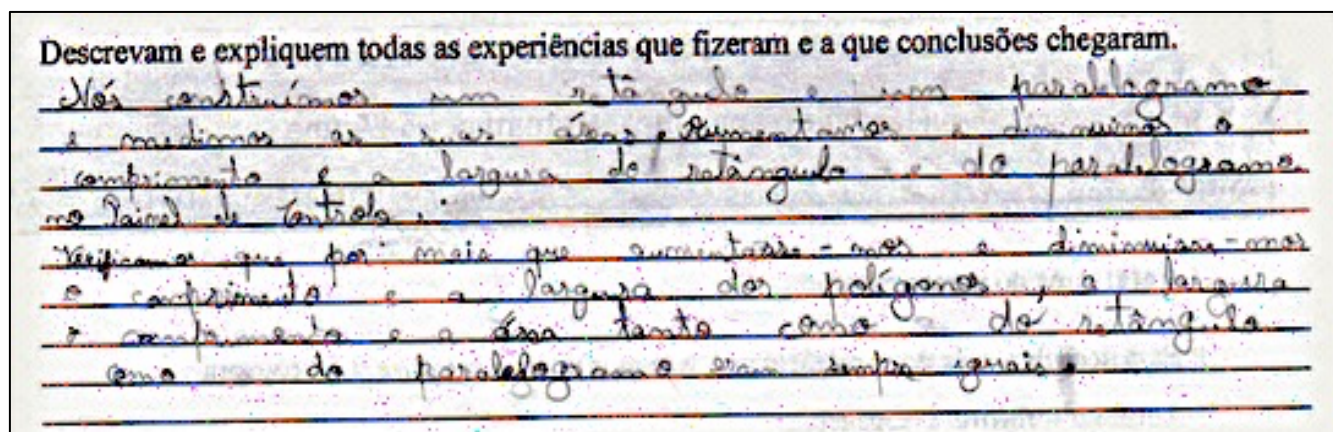 Descrevam e expliquem todas as experiências que fizeram e a que conclusões chegaram.
Nós construímos um retângulo e um paralelogramo
e medimos as suas áreas e Aumentamos e diminuimos o
comprimento e a largura do retângulo e do paralelogramo
no Painel de Controlo.
Verificamos que por mais que aumentasse-mos e diminuisse-mos
o comprimento e a largura dos polígonos, a largura
o comprimento e a área tanto como do retângulo
como o do paralelogramo eram sempre iguais.